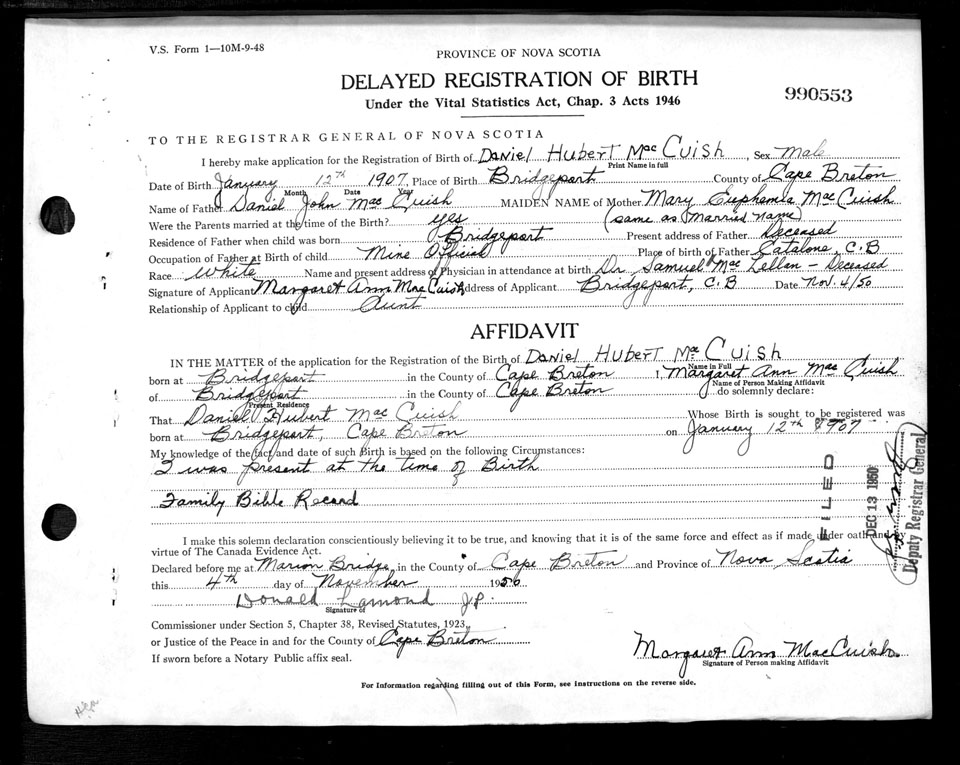 V.S. Form 1—10M-9-48
PROVINCE OF NOVA SCOTIA
DELAYED REGISTRATION OF BIRTH
Under the Vital Statistics Act, Chap. 3 Acts 1946
990553
TO THE REGISTRAR GENERAL OF NOVA SCOTIA
I hereby make application for the Registration of Birth of Daniel Hubert Mac Cuish, Sex Male
Print Name in full
Date of Birth January 12th 1907, Place of Birth Bridgeport County of Cape Breton
Month Date Year
Name of Father Daniel John Mac Cuish MAIDEN NAME of Mother Mary Euphemia Mac Cuish
Were the Parents married at the time of the Birth? yes (same as Married name)
Residence of Father when child was born Bridgeport Present address of Father Deceased
Occupation of Father at Birth of child Mine Official Place of birth of Father Catalone, C.B
Race White Name and present address of Physician in attendance at birth Dr. Samuel Mac Lellan – Deceased
Signature of Applicant Margaret Ann MacCuish, Address of Applicant Bridgeport, C.B Date Nov. 4/50
Relationship of Applicant to child Aunt
AFFIDAVIT
IN THE MATTER of the application for the Registration of the Birth of Daniel Hubert Mac Cuish
Name in Full
born at Bridgeport in the County of Cape Breton I, Margaret Ann Mac Cuish
Name of Person Making Affidavit
of Bridgeport in the County of Cape Breton do solemnly declare:
Present Residence
That Daniel Hubert Mac Cuish Whose Birth is sought to be registered was
born at Bridgeport, Cape Breton on January 12th 1907
My knowledge of the fact and date of such Birth is based on the following Circumstances:
I was present at the time of Birth
Family Bible Record
FILED
DEC 13 1950
Deputy Registrar General
I make this solemn declaration conscientiously believing it to be true, and knowing that it is of the same force and effect as if made under oath and by
virtue of The Canada Evidence Act.
Declared before me at Marion Bridge, in the County of Cape Breton and Province of Nova Scotia
this 4th day of November 1950
Donald Lamond J.P.
Signature of
Commissioner under Section 5, Chapter 38, Revised Statutes, 1923,
or Justice of the Peace in and for the County of Cape Breton
If sworn before a Notary Public affix seal.
Margaret Ann MacCuish
Signature of Person making Affidavit
For Information regarding filling out of this Form, see instructions on the reverse side.